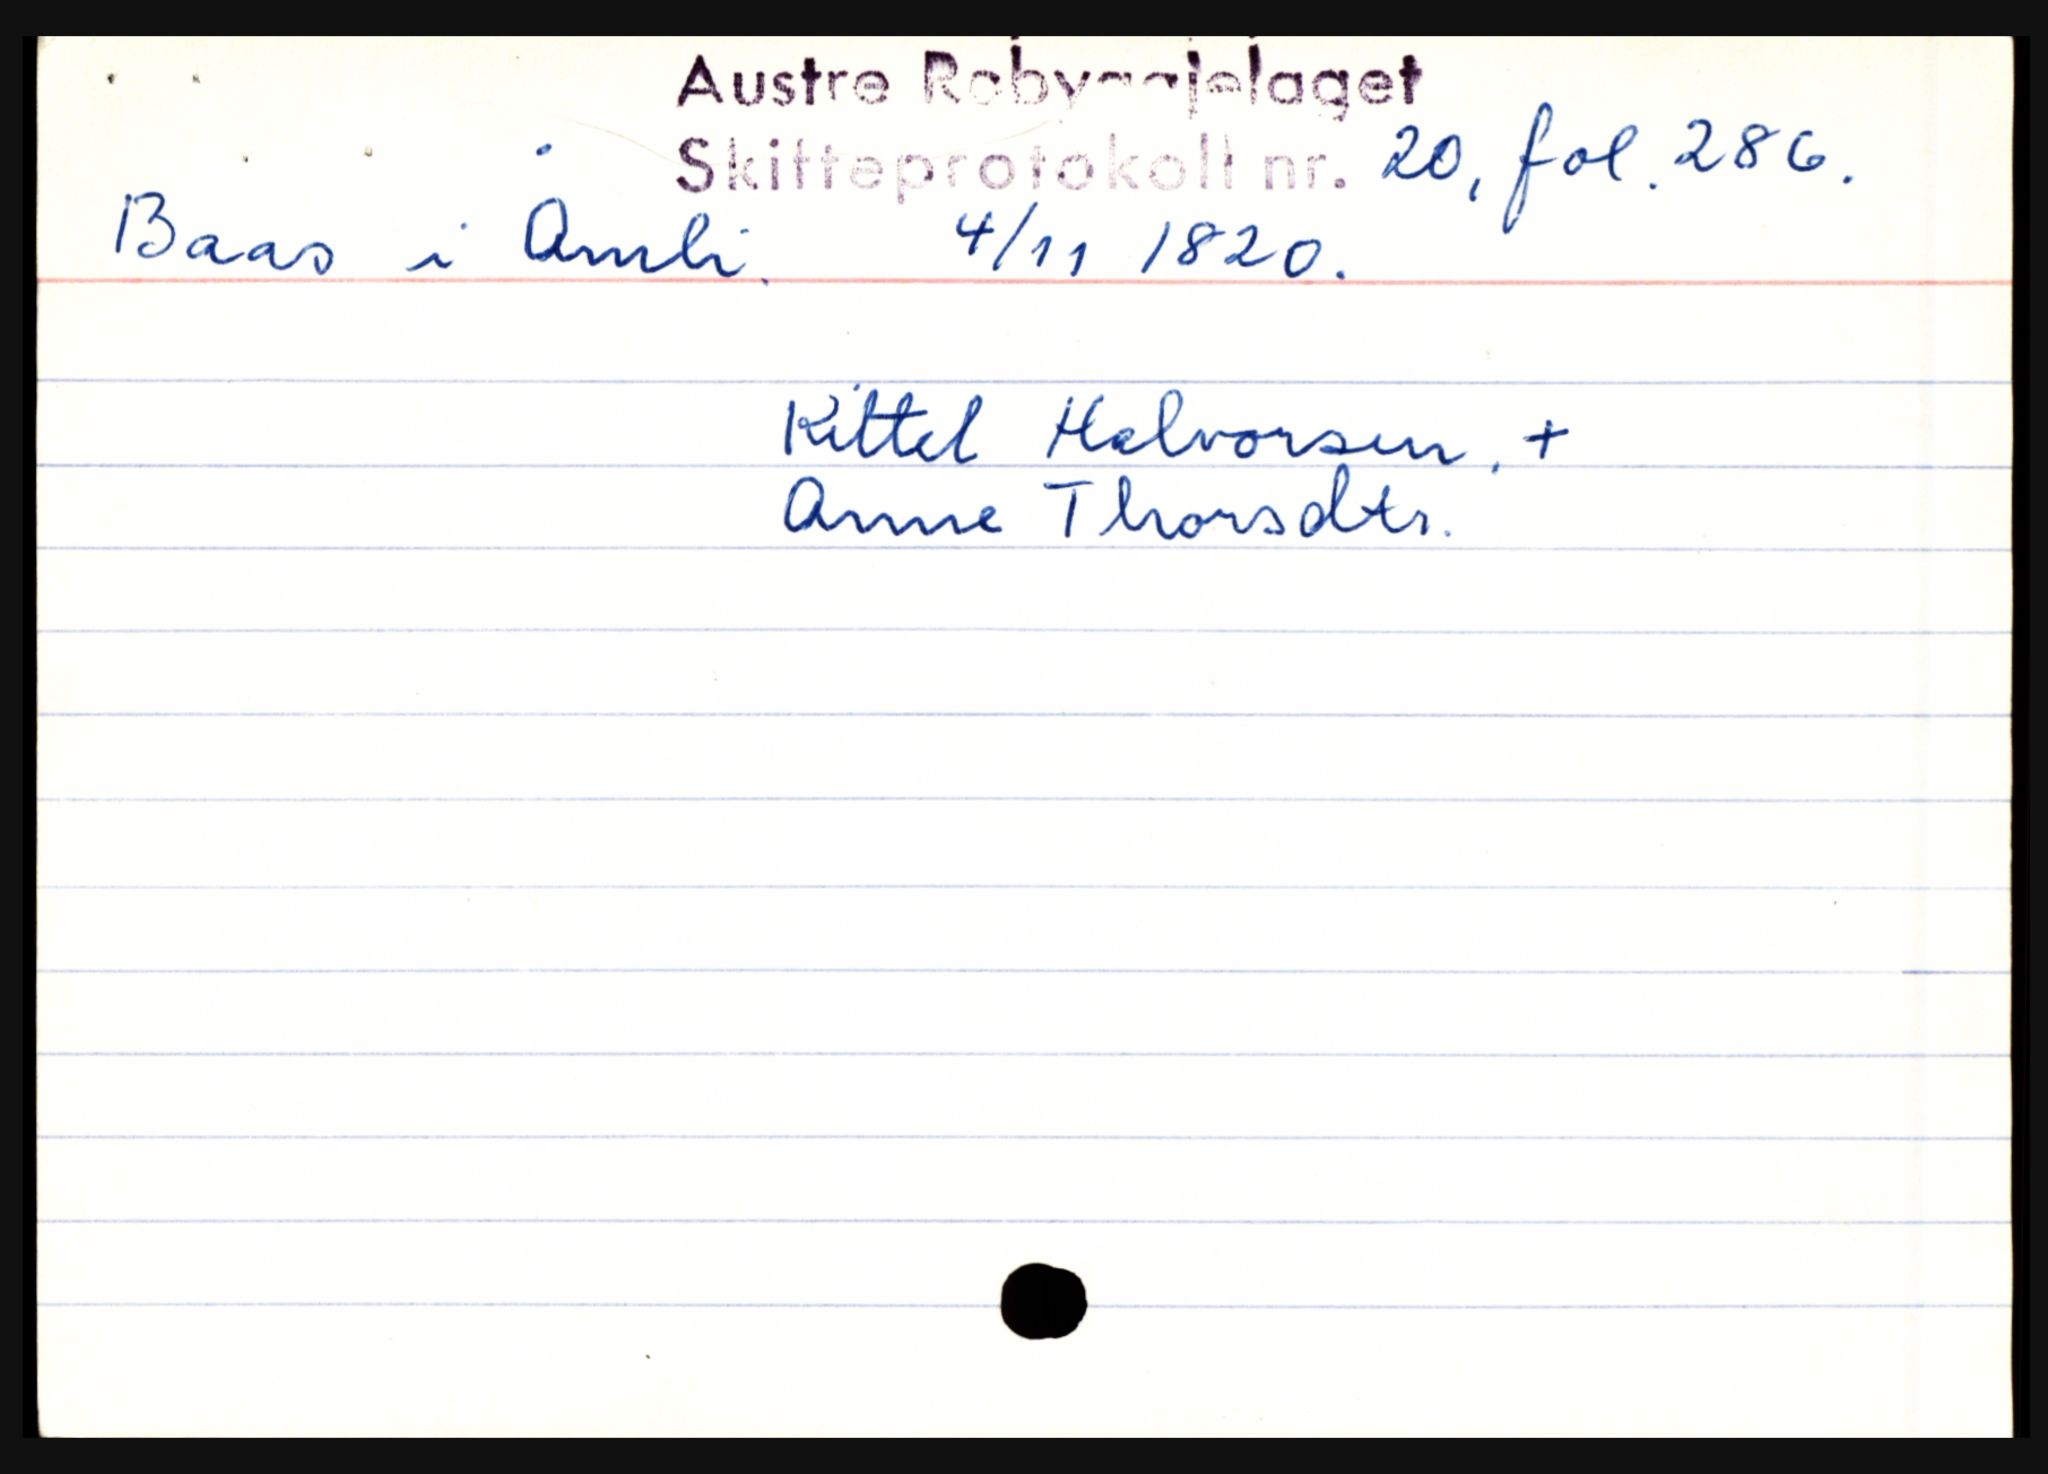 Austre Robyggjelaget
Skifteprotokoll nr. 20, fol. 286.
Baas i Åmli. 4/11 1820.
Kittel Halvorsen, +
Anne Thorsdtr.